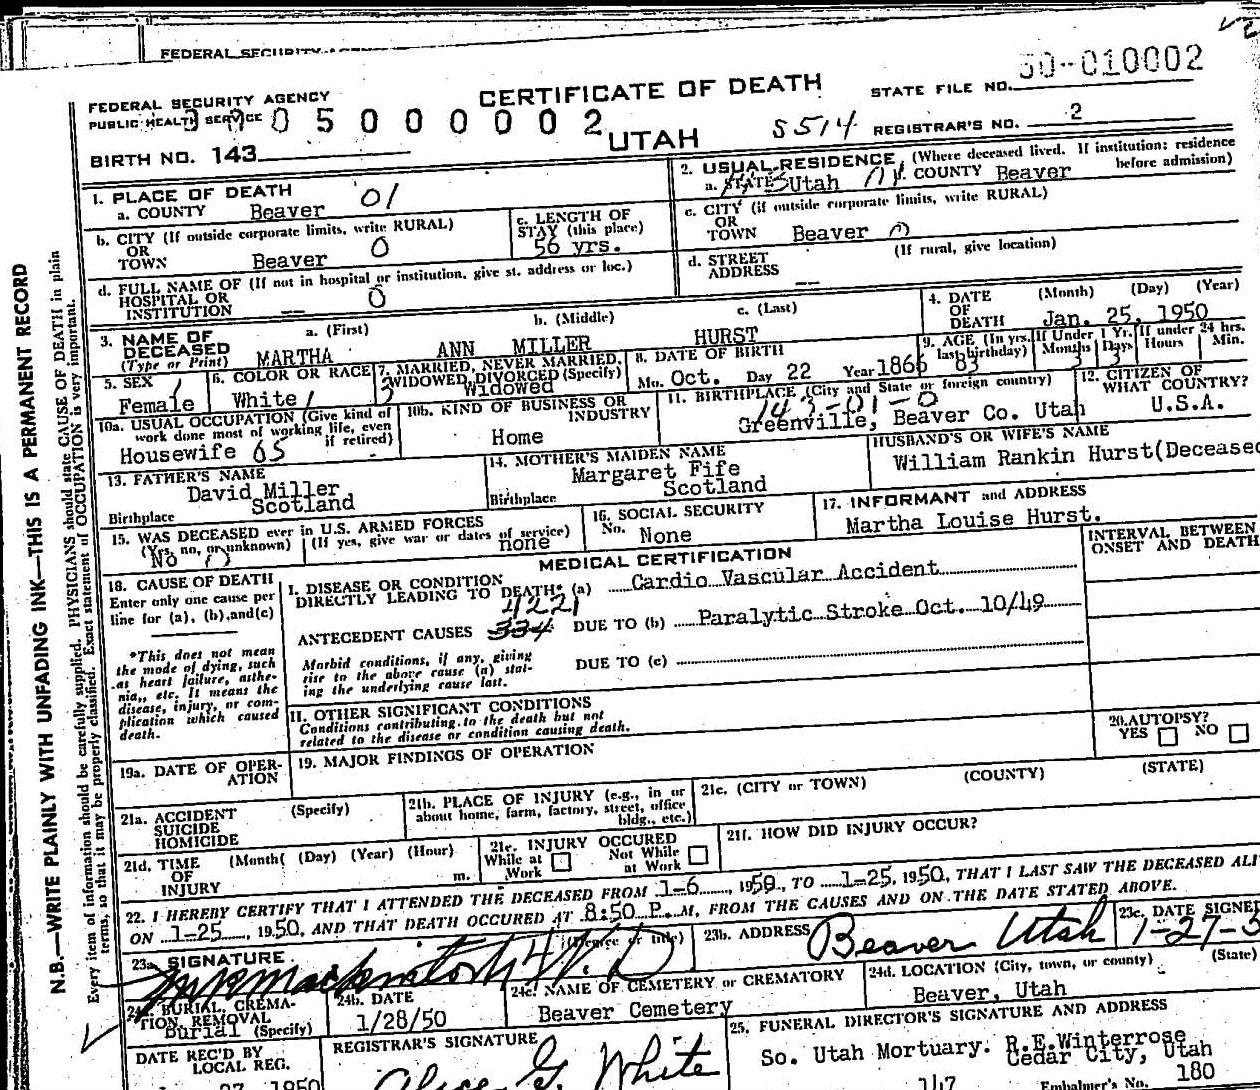 FEDERAL SECURITY AGENCY
CERTIFICATE OF DEATH
STATE FILE NO. 50-010002
PUBLIC HEALTH SERVICE
05000002
UTAH
S514
REGISTRAR'S NO. 2
BIRTH NO. 143
1. PLACE OF DEATH
a. COUNTY Beaver 01
2. USUAL RESIDENCE (Where deceased lived. If institution: residence before admission)
a. STATE Utah COUNTY Beaver
b. CITY (If outside corporate limits, write RURAL)
OR
TOWN Beaver 0
c. LENGTH OF
STAY (this place)
56 yrs.
c. CITY (if outside corporate limits, write RURAL)
OR
TOWN Beaver 0
d. FULL NAME OF (If not in hospital or institution, give st. address or loc.)
HOSPITAL OR
INSTITUTION -- 0
d. STREET
ADDRESS --
(If rural, give location)
3. NAME OF
DECEASED
(Type or Print)
a. (First) b. (Middle) c. (Last)
MARTHA ANN MILLER HURST
4. DATE
OF
DEATH
(Month) (Day) (Year)
Jan. 25, 1950
5. SEX
Female
6. COLOR OR RACE
White
7. MARRIED, NEVER MARRIED,
WIDOWED, DIVORCED (Specify)
Widowed
8. DATE OF BIRTH
Mo. Oct. Day 22 Year 1866
9. AGE (In yrs. last birthday)
83
If Under 1 Yr.
Months Days
If under 24 hrs.
Hours Min.
10a. USUAL OCCUPATION (Give kind of
work done most of working life, even
if retired)
Housewife 65
10b. KIND OF BUSINESS OR
INDUSTRY
Home
11. BIRTHPLACE (City and State or foreign country)
143-01-0
Greenville, Beaver Co. Utah
12. CITIZEN OF
WHAT COUNTRY?
U.S.A.
13. FATHER'S NAME
David Miller
Birthplace Scotland
14. MOTHER'S MAIDEN NAME
Margaret Fife
Birthplace Scotland
HUSBAND'S OR WIFE'S NAME
William Rankin Hurst(Decease
15. WAS DECEASED ever in U.S. ARMED FORCES
(Yes, no, or unknown) (If yes, give war or dates of service)
No none
16. SOCIAL SECURITY
No. None
17. INFORMANT and ADDRESS
Martha Louise Hurst.
MEDICAL CERTIFICATION
INTERVAL BETWEEN
ONSET AND DEATH
18. CAUSE OF DEATH
Enter only one cause per
line for (a), (b), and (c)
*This does not mean
the mode of dying, such
as heart failure, asthe-
nia, etc. It means the
disease, injury, or com-
plication which caused
death.
I. DISEASE OR CONDITION
DIRECTLY LEADING TO DEATH* (a) Cardio Vascular Accident
4221
ANTECEDENT CAUSES 334 DUE TO (b) Paralytic Stroke Oct. 10/49
Morbid conditions, if any, giving
rise to the above cause (a) stat-
ing the underlying cause last.
DUE TO (c)
II. OTHER SIGNIFICANT CONDITIONS
Conditions contributing to the death but not
related to the disease or condition causing death.
19a. DATE OF OPER-
ATION
19. MAJOR FINDINGS OF OPERATION
20. AUTOPSY?
YES NO
21a. ACCIDENT
SUICIDE
HOMICIDE
(Specify)
21b. PLACE OF INJURY (e.g., in or
about home, farm, factory, street, office
bldg., etc.)
21c. (CITY or TOWN) (COUNTY) (STATE)
21d. TIME
OF
INJURY
(Month( (Day) (Year) (Hour)
m.
21e. INJURY OCCURED
While at Work
Not While at Work
21f. HOW DID INJURY OCCUR?
22. I HEREBY CERTIFY THAT I ATTENDED THE DECEASED FROM 1-6, 1950, TO 1-25, 1950, THAT I LAST SAW THE DECEASED ALI
ON 1-25, 1950, AND THAT DEATH OCCURED AT 8:50 P.M, FROM THE CAUSES AND ON THE DATE STATED ABOVE.
23a. SIGNATURE
(Degree or title)
M.D
23b. ADDRESS
Beaver Utah
23c. DATE SIGNE
1-27-5
24. BURIAL, CREMA-
TION, REMOVAL
Burial (Specify)
24b. DATE
1/28/50
24c. NAME OF CEMETERY or CREMATORY
Beaver Cemetery
24d. LOCATION (City, town, or county) (State)
Beaver, Utah
DATE REC'D BY
LOCAL REG.
1950
REGISTRAR'S SIGNATURE
Alice G. White
25. FUNERAL DIRECTOR'S SIGNATURE AND ADDRESS
So. Utah Mortuary. R.E.Winterrose
Cedar City, Utah
147
Embalmer's No. 180
N.B.—WRITE PLAINLY WITH UNFADING INK—THIS IS A PERMANENT RECORD
Every item of information should be carefully supplied. PHYSICIANS should state CAUSE OF DEATH in plain
terms, so that it may be properly classified. Exact statement of OCCUPATION is very important.